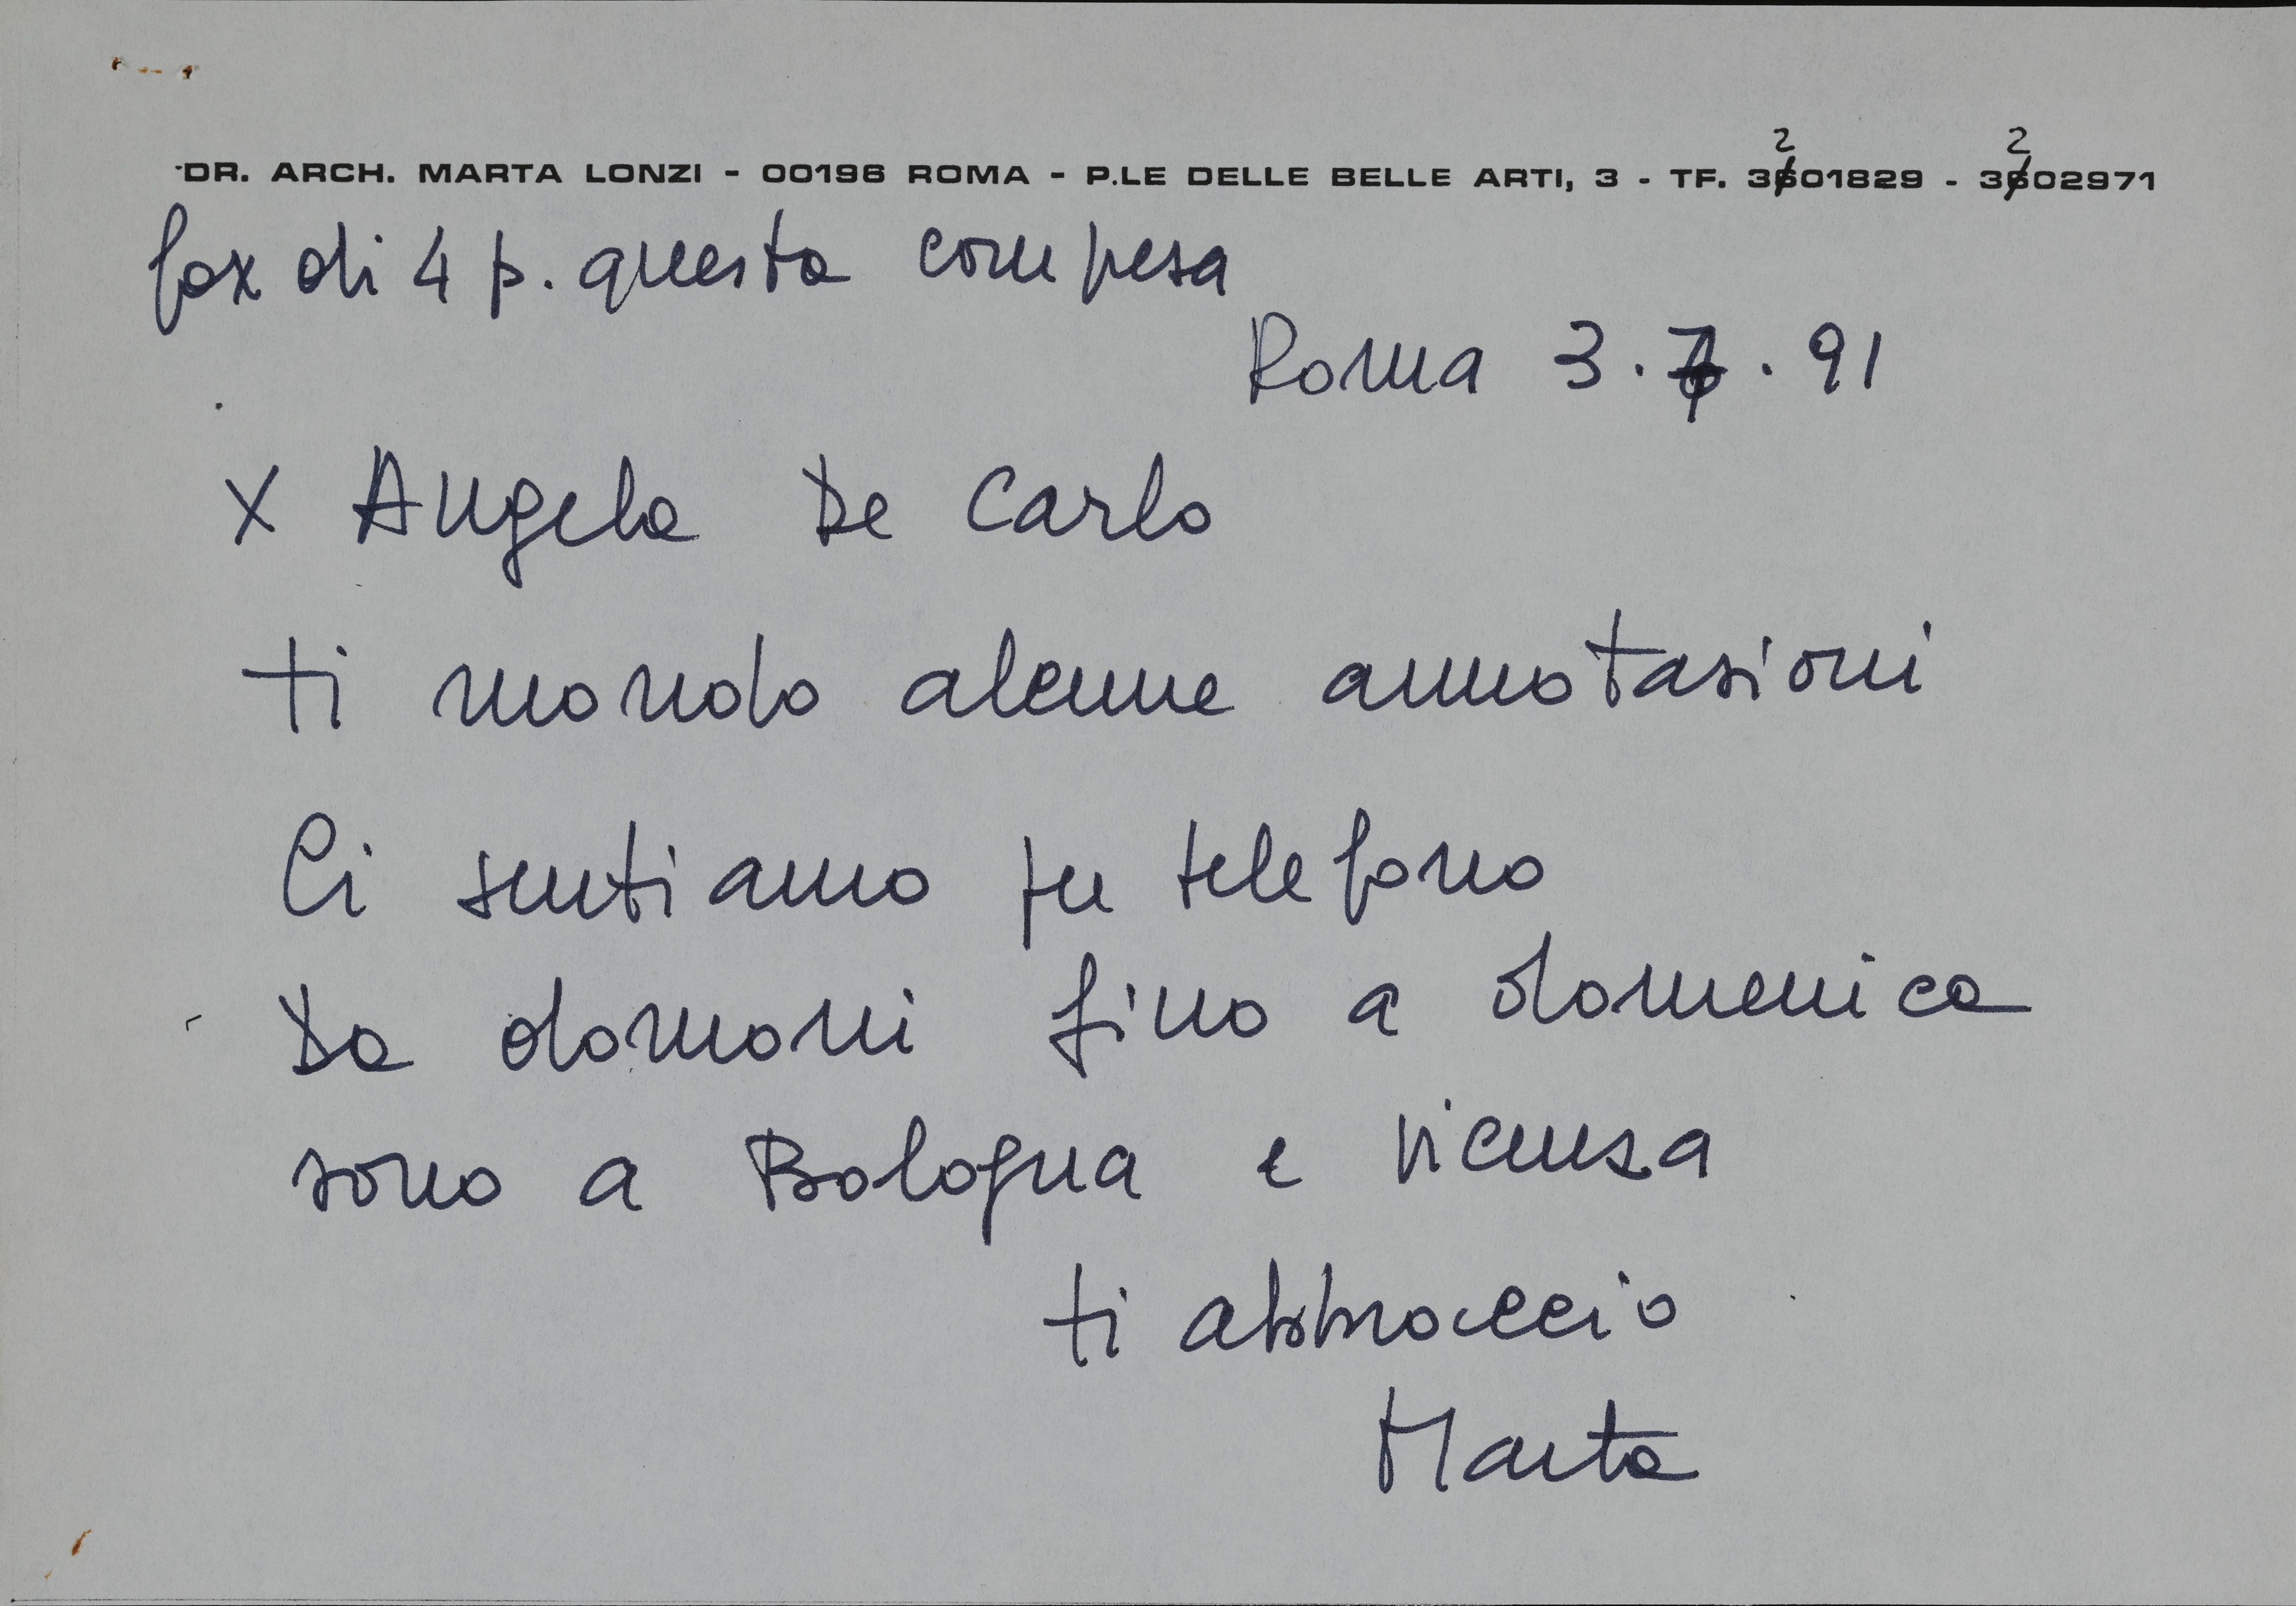 DR. ARCH. MARTA LONZI - 00196 ROMA - P.LE DELLE BELLE ARTI, 3 - TF. 3201829 - 3202971
fax di 4 p. questa compresa
Roma 3.7.91
x Angela De Carlo
ti mando alcune annotazioni
Ci sentiamo per telefono
Da domani fino a domenica
sono a Bologna e Vicenza
ti abbraccio
Marta